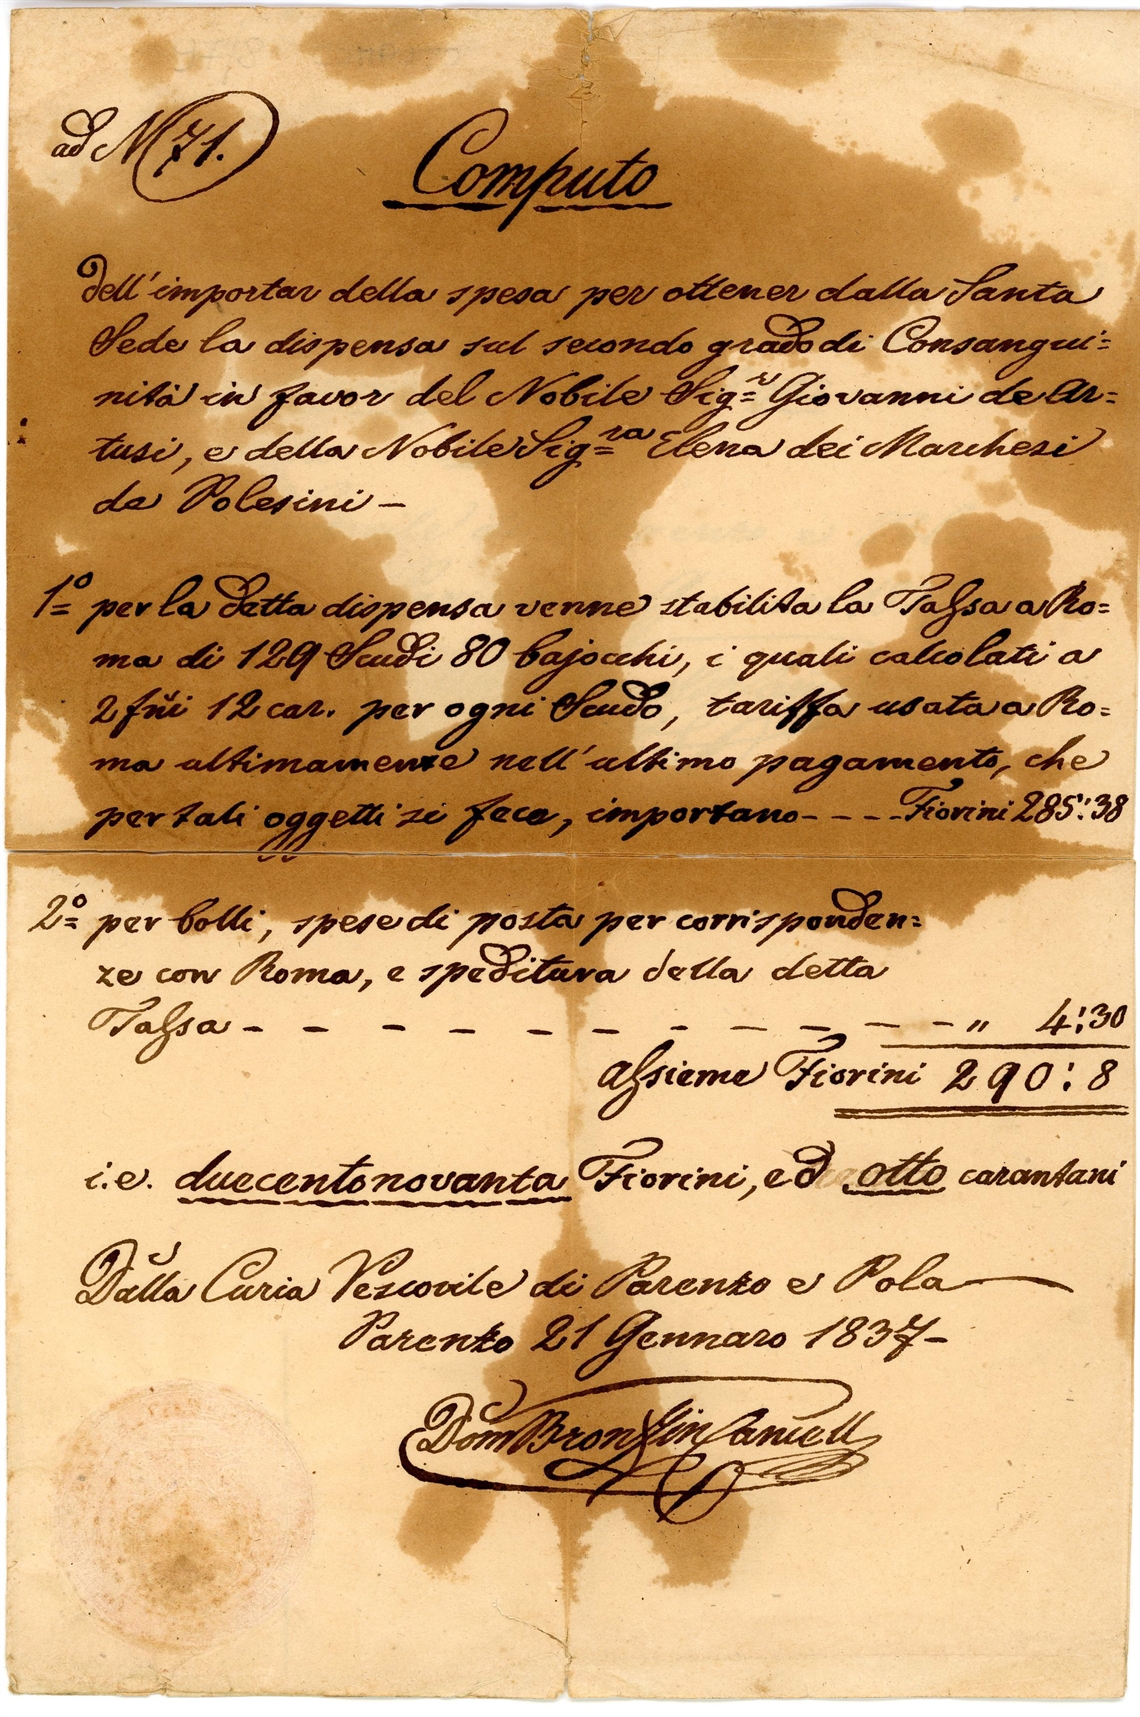 ad N 71.
Computo
dell'importar della spesa per ottener dalla Santa
Sede la dispensa sul secondo grado di Consangui=
nità in favor del Nobile Sig.r Giovanni de Ar=
tusi, e della Nobile Sig.ra Elena dei Marchesi
de Polesini –
1º per la detta dispensa venne stabilita la Tassa a Ro=
ma di 129 Scudi 80 bajocchi, i quali calcolati a
2 fñi 12 car. per ogni Scudo, tariffa usata a Ro=
ma ultimamente nell'ultimo pagamento, che
per tali oggetti si fece, importano - - - - Fiorini 285:38
2º per bolli, spese di posta per corrisponden=
ze con Roma, e speditura della detta
Tassa - - - - - - - - - - - - - " 4:30
assieme Fiorini 290:8
i.e. duecentonovanta Fiorini, ed otto carantani
Dalla Curia Vescovile di Parenzo e Pola
Parenzo 21 Gennaro 1837–
Dom Bronzin